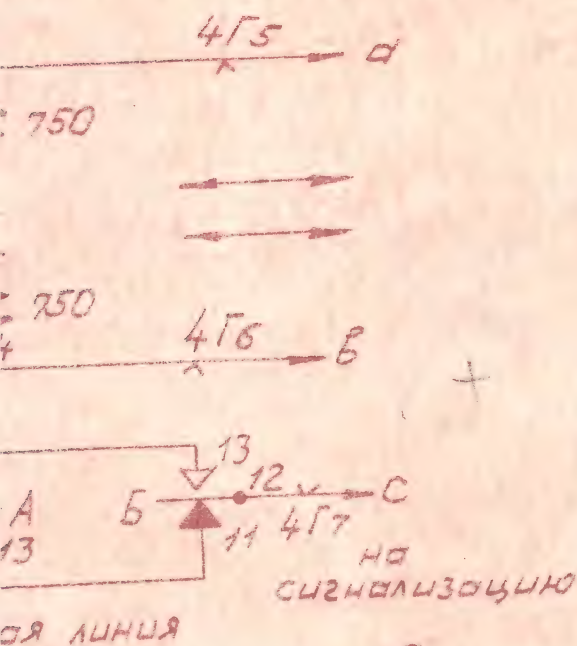 4Г5
а
750
750
4
4Г6
в
13
А
Б
12
С
13
11
4Г7
на
сигнализацию
ая линия